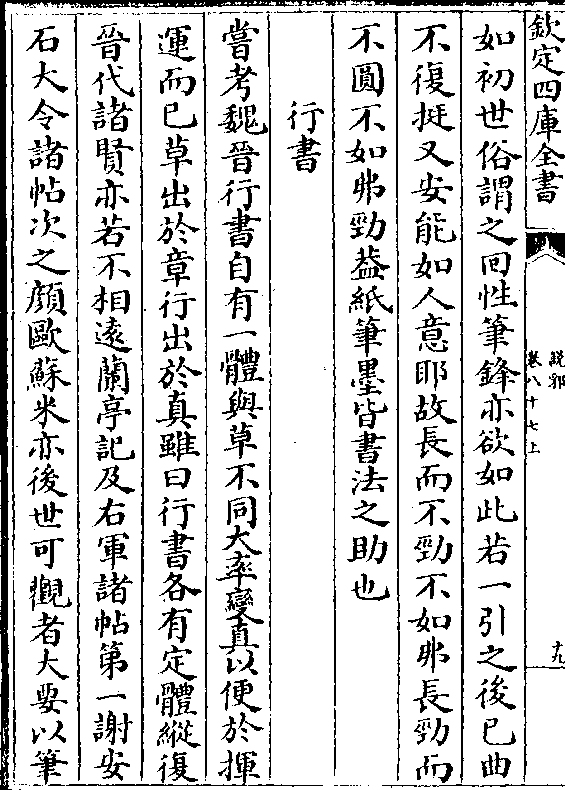 欽定四庫全書
說郛
卷八十七上
十九
如初世俗謂之回性筆鋒亦欲如此若一引之後已曲
不復挺又安能如人意耶故長而不勁不如弗長勁而
不圓不如弗勁葢紙筆墨皆書法之助也
行書
嘗考魏晉行書自有一體與草不同大率變真以便於揮
運而已草出於章行出於真雖曰行書各有定體縱復
晉代諸賢亦若不相遠蘭亭記及右軍諸帖第一謝安
石大令諸帖次之顔歐蘇米亦後世可觀者大要以筆